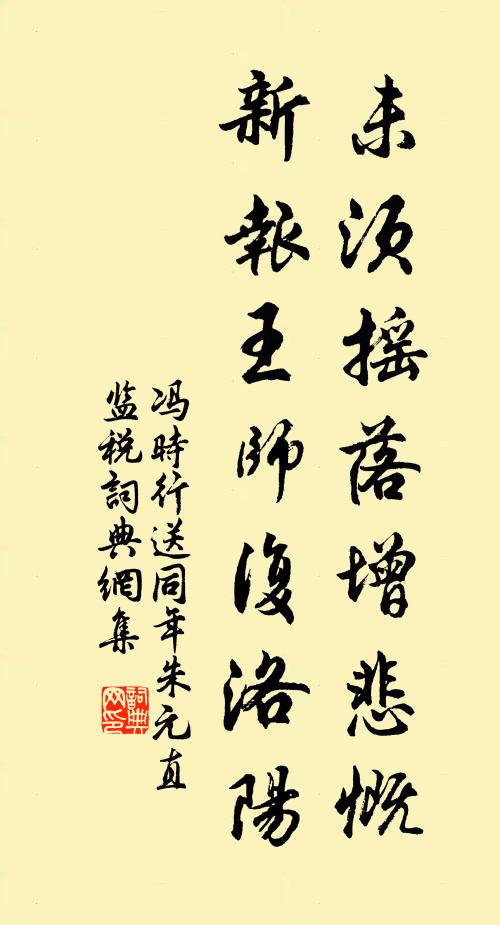 未須摇落增悲慨
新報王師復洛陽
冯時行送同年朱元直
监税詞典網集
詞典網印